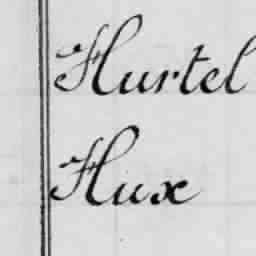 Hurtel
Hux